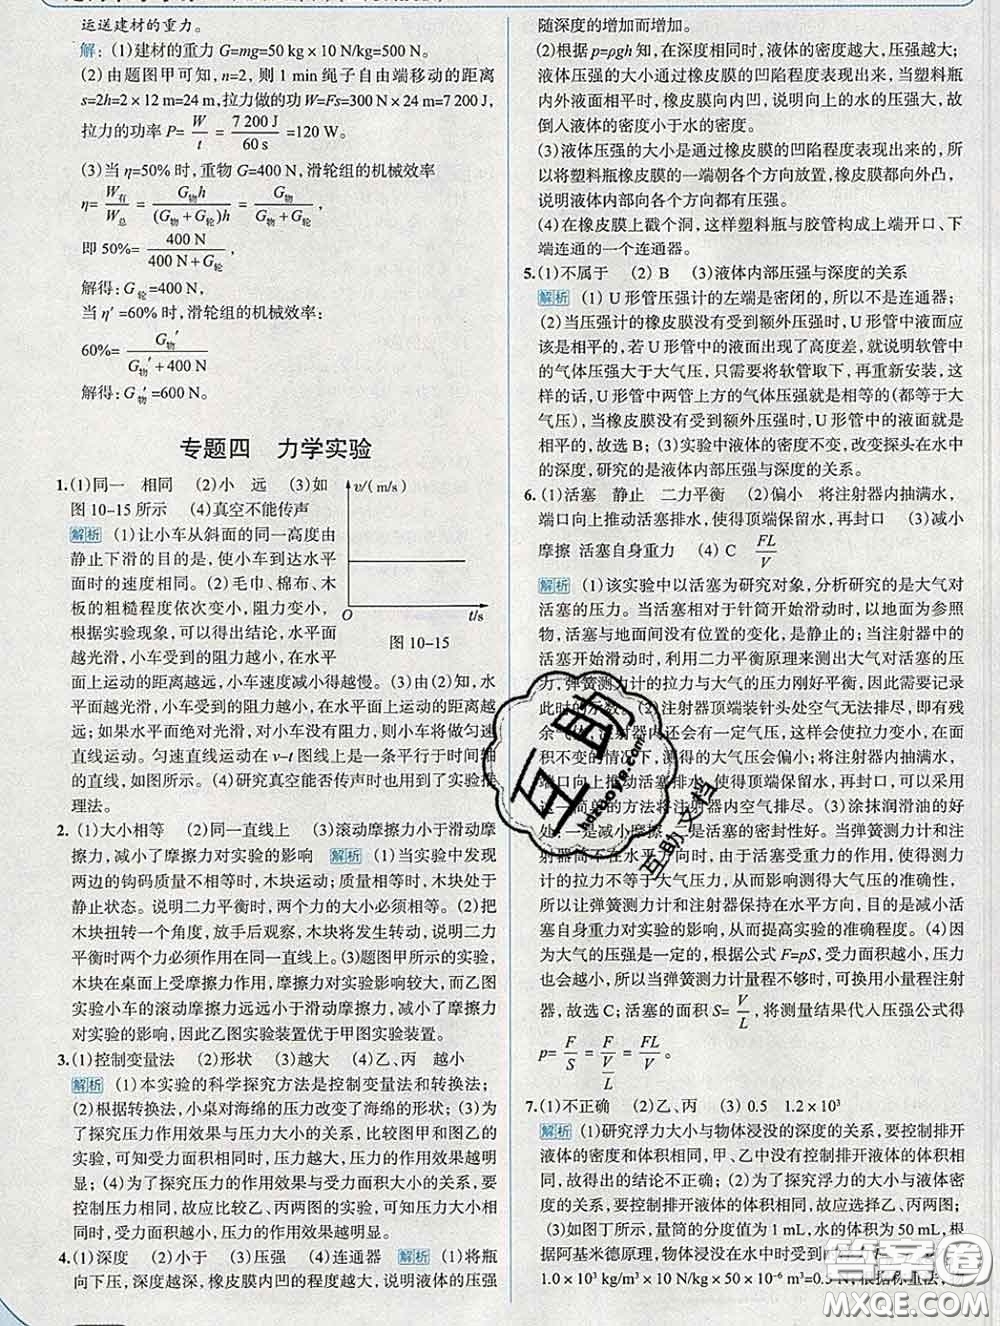 运送建材的重力.
解:(1)建材的重力 G=mg=50 kg×10 N/kg=500 N.
(2)由题图甲可知,n=2,则1 min绳子自由端移动的距离
s=2h=2×12 m=24 m,拉力做的功W=Fs=300 N×24 m=7 200 J,
拉力的功率 P=W/t=7 200 J/60 s=120 W。
(3)当 η=50%时,重物 G=400 N,滑轮组的机械效率
η=W有/W总=G物h/(G物+G轮)h=G物/(G物+G轮),
即 50%=400 N/(400 N+G轮),
解得:G轮=400 N,
当 η′=60%时,滑轮组的机械效率:
60%=G物′/(G物′+400 N)
解得:G物′=600 N.
专题四 力学实验
1.(1)同一 相同 (2)小 远 (3)如
图 10-15 所示 (4)真空不能传声
解析 (1)让小车从斜面的同一高度由
静止下滑的目的是,使小车到达水平
面时的速度相同。(2)毛巾、棉布、木
板的粗糙程度依次变小,阻力变小,
根据实验现象,可以得出结论,水平面
越光滑,小车受到的阻力越小,在水平
v/(m/s)
O
t/s
图 10-15
面上运动的距离越远,小车速度减小得越慢。(3)由(2)知,水
平面越光滑,小车受到的阻力越小,在水平面上运动的距离越
远;如果水平面绝对光滑,对小车没有阻力,则小车将做匀速
直线运动。匀速直线运动在 v-t 图线上是一条平行于时间轴
的直线,如图所示。(4)研究真空能否传声时也用到了实验推
理法。
2.(1)大小相等 (2)同一直线上 (3)滚动摩擦力小于滑动摩
擦力,减小了摩擦力对实验的影响 解析 (1)当实验中发现
两边的钩码质量不相等时,木块运动;质量相等时,木块处于
静止状态。说明二力平衡时,两个力的大小必须相等。(2)把
木块扭转一个角度,放手后观察,木块将发生转动,说明二力
平衡时两个力必须作用在同一直线上。(3)题图甲所示的实验,
木块在桌面上受摩擦力作用,摩擦力对实验影响较大,而乙图
实验小车的滚动摩擦力远远小于滑动摩擦力,减小了摩擦力
对实验的影响,因此乙图实验装置优于甲图实验装置。
3.(1)控制变量法 (2)形状 (3)越大 (4)乙、丙 越小
解析 (1)本实验的科学探究方法是控制变量法和转换法;
(2)根据转换法,小桌对海绵的压力改变了海绵的形状;(3)为
了探究压力作用效果与压力大小的关系,比较图甲和图乙的
实验,可知受力面积相同时,压力越大,压力作用效果越明显;
(4)为了探究压力的作用效果与受力面积大小的关系,应控制
压力大小相同,故应比较乙、丙两图的实验,可知压力大小相
同时,受力面积越小,压力的作用效果越明显
4.(1)深度 (2)小于 (3)压强 (4)连通器 解析 (1)将瓶
向下压,深度越深,橡皮膜内凹的程度越大,说明液体的压强
随深度的增加而增加。
(2)根据 p=ρgh 知,在深度相同时,液体的密度越大,压强越大;
液体压强的大小通过橡皮膜的凹陷程度表现出来,当塑料瓶
内外液面相平时,橡皮膜向内凹,说明向上的水的压强大,故
倒入液体的密度小于水的密度。
(3)液体压强的大小是通过橡皮膜的凹陷程度表现出来的,所
以将塑料瓶橡皮膜的一端朝各个方向放置,橡皮膜都向外凸,
说明液体内部向各个方向都有压强。
(4)在橡皮膜上戳个洞,这样塑料瓶与胶管构成上端开口、下
端连通的一个连通器。
5.(1)不属于 (2)B (3)液体内部压强与深度的关系
解析 (1)U形管压强计的左端是密闭的,所以不是连通器;
(2)当压强计的橡皮膜没有受到额外压强时,U形管中液面应
该是相平的,若U形管中的液面出现了高度差,就说明软管中
的气体压强大于大气压,只需要将软管取下,再重新安装,这
样的话,U形管中两管上方的气体压强就是相等的(都等于大
气压),当橡皮膜没有受到额外压强时,U形管中的液面就是
相平的,故选 B;(3)实验中液体的密度不变,改变探头在水中
的深度,研究的是液体内部压强与深度的关系。
6.(1)活塞 静止 二力平衡 (2)偏小 将注射器内抽满水,
端口向上推动活塞排水,使得顶端保留水,再封口 (3)减小
摩擦 活塞自身重力 (4)C FL/V
解析 (1)该实验中以活塞为研究对象,分析研究的是大气对
活塞的压力。当活塞相对于针筒开始滑动时,以地面为参照
物,活塞与地面间没有位置的变化,是静止的;当注射器中的
活塞开始滑动时,利用二力平衡原理来测出大气对活塞的压
力,弹簧测力计的拉力与大气的压力刚好平衡,因此需要记录
此时的示数。(2)注射器顶端装针头处空气无法排尽,即有残
余气体,注射器内还会有一定气压,这样会使拉力变小,在面
积不变的情况下,测的大气压会偏小;将注射器内抽满水,
端口向上推动活塞排水,使得顶端保留水,再封口,可以采用
这一简单的方法将注射器内空气排尽。(3)涂抹润滑油的好
处:一是减小摩擦,二是活塞的密封性好。当弹簧测力计和注
射器筒不在水平方向时,由于活塞受重力的作用,使得弹簧测力
计的拉力不等于大气压力,从而影响测得大气压的准确性,
所以让弹簧测力计和注射器保持在水平方向,目的是减小活
塞自身重力对实验的影响,从而提高实验的准确度。(4)因
为大气的压强是一定的,根据公式 F=pS,受力面积越小,压力
也会越小,所以当弹簧测力计量程不够时,可换用小量程注射
器,故选 C;活塞的面积 S=V/L,将测量结果代入压强公式得
p=F/S=F/(V/L)=FL/V。
7.(1)不正确 (2)乙、丙 (3)0.5 1.2×10³
解析 (1)研究浮力大小与物体浸没的深度的关系,要控制排开
液体的密度和体积相同,甲、乙中控制排开液体的体积相同,
故得出的结论不正确;(2)为了探究浮力的大小与液体密度的
关系,要控制排开液体的体积相同,故应选择乙、丙两图;
(3)如图丁所示,量筒的分度值为1 mL,水的体积为 50 mL,根
据阿基米德原理,物体浸没在水中时受到
1.0×10³ kg/m³×10 N/kg×50×10⁻⁶ m³=0.5 N,根据称重法,
互助
hdzuoye.com
互助文档
答案卷
MXQE.COM